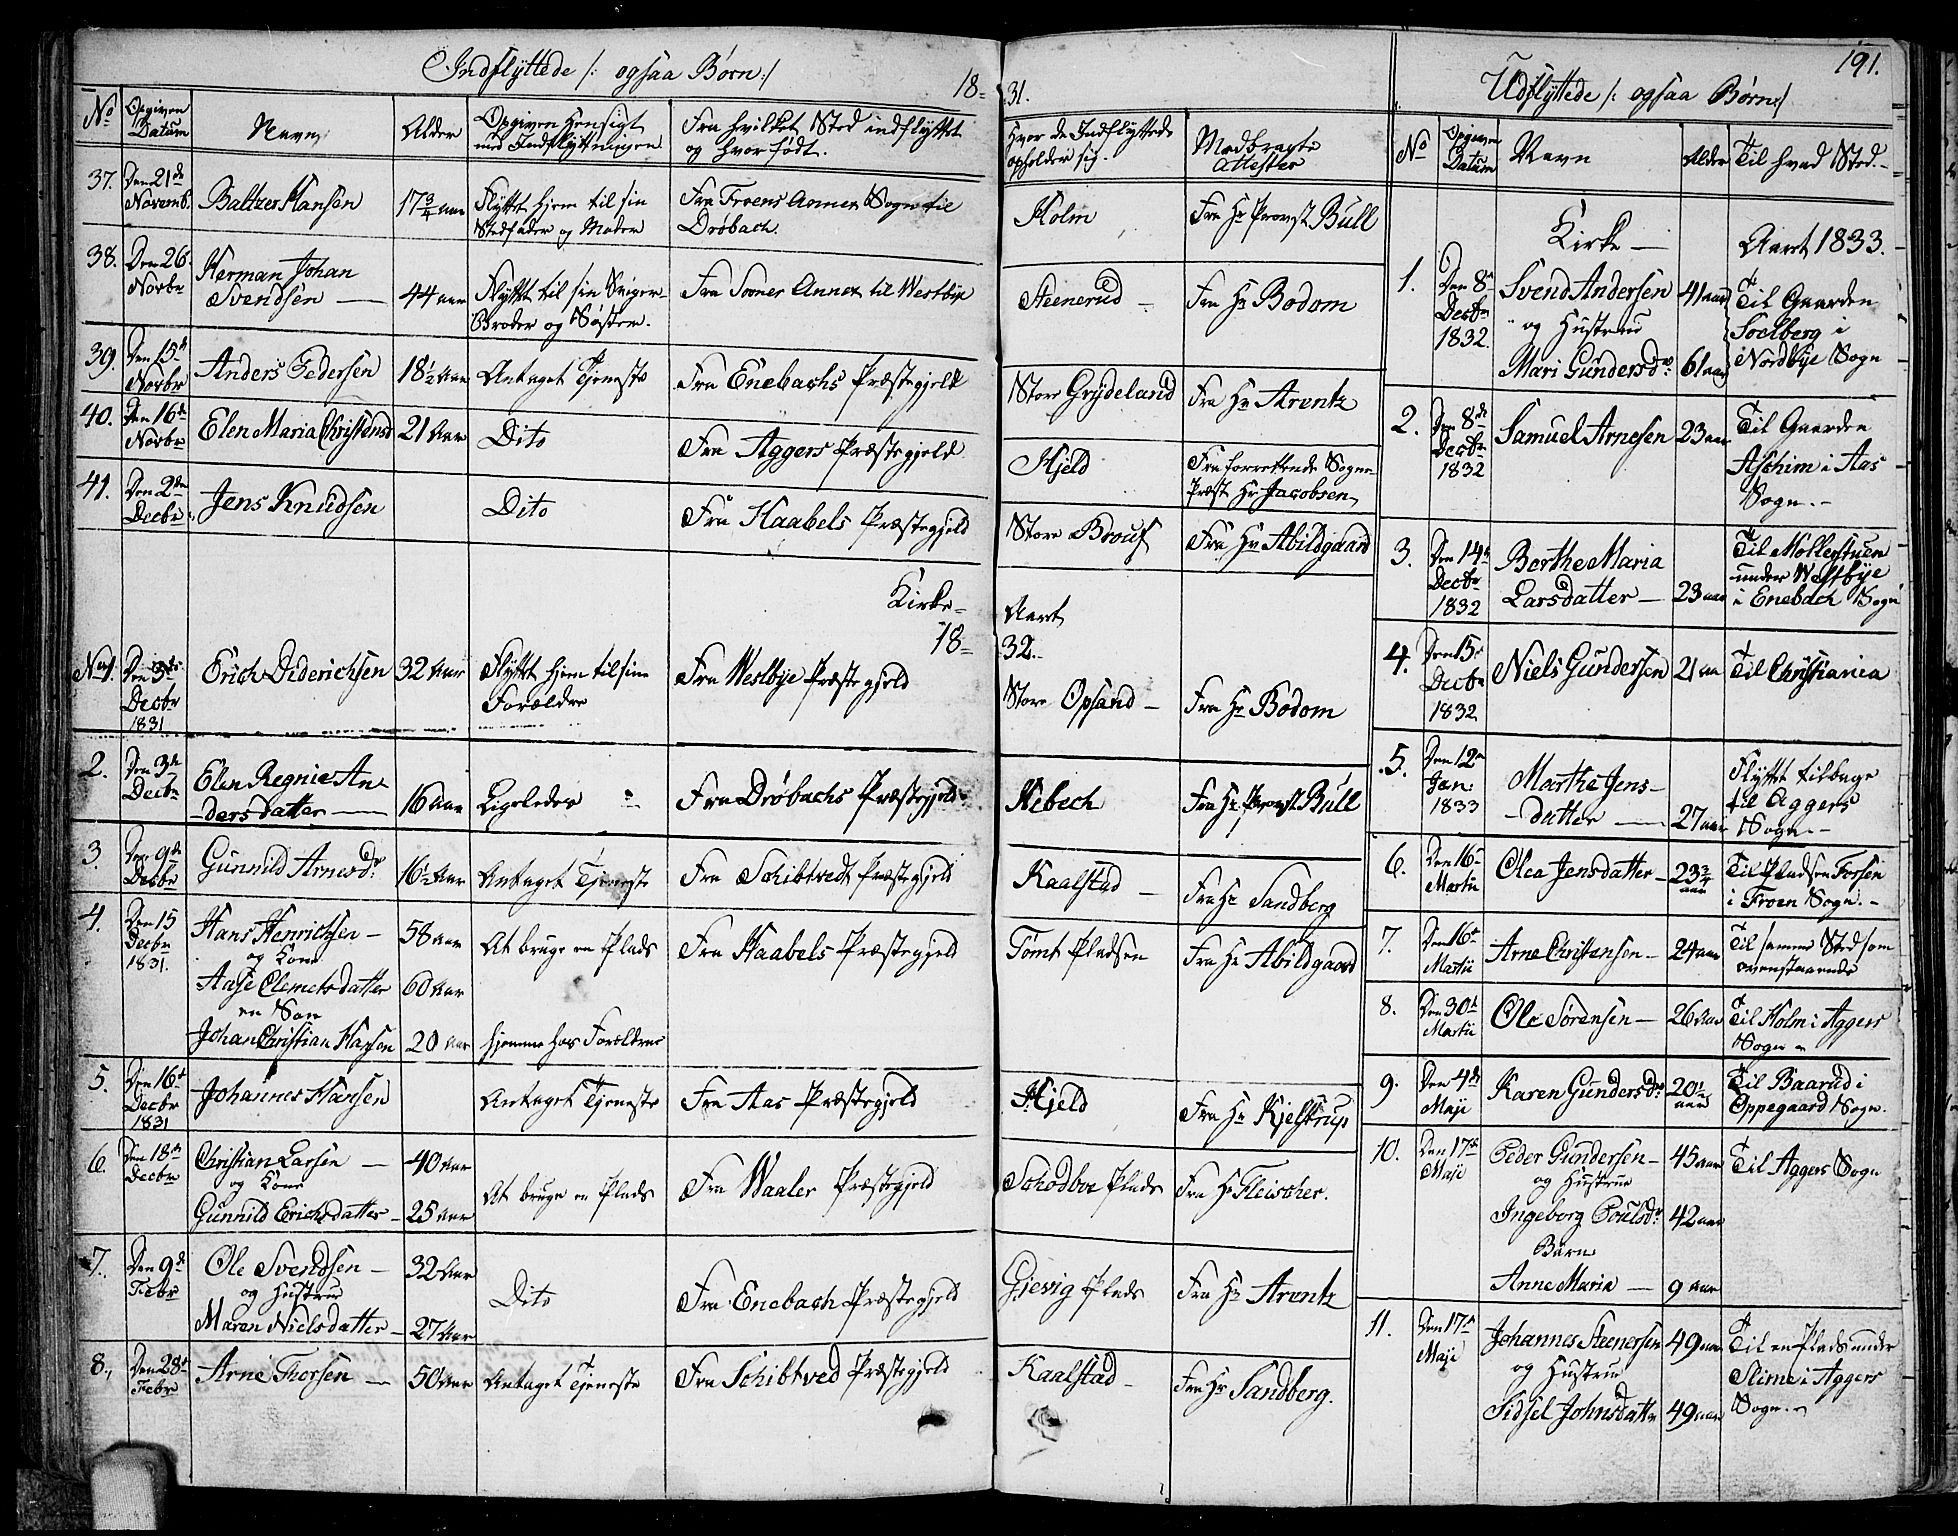 Indflyttede /: ogsaa Børn :/ 18-31.
No
Opgiven Datum
Navn
Alder
Opgiven Hensigt med Indflytningen
Fra hvilket Sted indflyttet og hvor født.
Hvor de Indflyttede opholder sig.
Medbragte Attester
37. Den 21de Novemb. Baltzer Hansen 17 3/4 aar Flyttet hjem til sin Stedfader og Moder Fra Froens Annex Sogn til Drøbach. Holm Fra Hr Provst Bull
38. Den 26. Novbr Herman Johan Svendsen 44 aar Flyttet til sin Sviger-Broder og Søster. Fra Soner Annex til Westbye Steenerud Fra Hr Bodom
39. Den 15de Novbr Anders Pedersen 18 1/2 Aar Antaget Tjeneste Fra Enebachs Præstegjeld Store Grydeland Fra Hr Arentz
40. Den 16de Novbr Elen Maria Christensd 21 Aar Dito Fra Aggers Præstegjeld. Hjeld Fra forrettende Sogne-Præst Hr Jacobsen
41. Den 2den Decbr. Jens Knudsen Dito Fra Haabels Præstegjeld Store Brouf Fra Hr Abildgaard
Kirke- Aaret
18- 32.
No 1. Den 3de Decbr 1831 Erich Diderichsen 32 Aar Flyttet hjem til sine Forældre Fra Westbye Præstegjeld Store Opsand Fra Hr Bodom
2. Den 3de Decbr Elen Regnie Andersdatter 16 Aar Ligeledes Fra Drøbachs Præstegjeld Nebech Fra Hr Provst Bull
3. Den 9de Decbr Gunnild Arnesdr 16 1/2 Aar Antaget Tjeneste Fra Schibtvedt Præstegjeld Kaalstad Fra Hr Sandberg
4. Den 15 Decbr 1831. Hans Henrichsen 58 aar At bruge en Plads Fra Haabels Præstegjeld Tomt Pladsen Fra Hr Abildgaard
og Kone
Aase Clemetsdatter 60 Aar
en Søn
Johan Christian Hansen 20 Aar hjemme hos Forældrene
5. Den 16de Decbr 1831 Johannes Hansen Antaget Tjeneste Fra Aas Præstegjeld Hjeld Fra Hr Kjelstrup
6. Den 18de Decbr Christian Larsen 40 Aar At bruge en Plads Fra Waaler Præstegjeld Schodboe Plads Fra Hr Fleischer.
og Kone
Gunnild Erichsdatter 25 Aar
7. Den 9de Febr Ole Svendsen 32 Aar Dito Fra Enebach Præstegjeld Gjevig Plads Fra Hr Arentz
og Hustrue
Maren Nielsdatter 27 Aar
8. Den 28de Febr Arne Thorsen 50 Aar Antaget Tjeneste Fra Schibtved Præstegjeld Kaalstad Fra Hr Sandberg.
Udflyttede /: ogsaa Børn :/
191.
No
Opgiven Datum
Navn
Alder
Til hvad Sted.
Kirke - Aaret 1833.
1. Den 8de Decbr 1832. Svend Andersen 41 aar Til Gaarden Soelberg i Nordbye Sogn
og Hustrue
Mari Gundersdr 61 aar
2. Den 8de Decbr 1832 Samuel Arnesen 23 aar Til Gaarden Aschim i Aas Sogn.
3. Den 14de Decbr 1832 Berthe Maria Larsdatter 23 aar Til Møllerstuen under Westbye i Enebach Sogn
4. Den 15de Decbr 1832 Niels Gundersen 21 aa Til Christiania
5. Den 12te Jan: 1833 Marthe Jensdatter 27 aar Flyttet tilbage til Aggers Sogn.
6. Den 16de Martii Olea Jensdatter 23 3/4 aar Til Pladsen Forsen i Froen Sogn.
7. Den 16de Martii Arne Christensen 24 aar Til samme Sted som ovenstaaende
8. Den 30te Martii Ole Sørensen 26 Aar Til Holm i Aggers Sogn
9. Den 4de Maji Karen Gundersdr 20 1/2 aar Til Baarud i Oppegaard Sogn.
10. Den 17de Maji Peder Gundersen 45 aar Til Aggers Sogn
og Hustrue
Ingeborg Poulsdr 42 aar
Barn
Anne Maria 9 aar
11. Den 17de Maji Johannes Steenersen 49 aar Til en Plads under Slime i Aggers Sogn.
og Hustrue
Sidsel Johnsdatter 49 aar